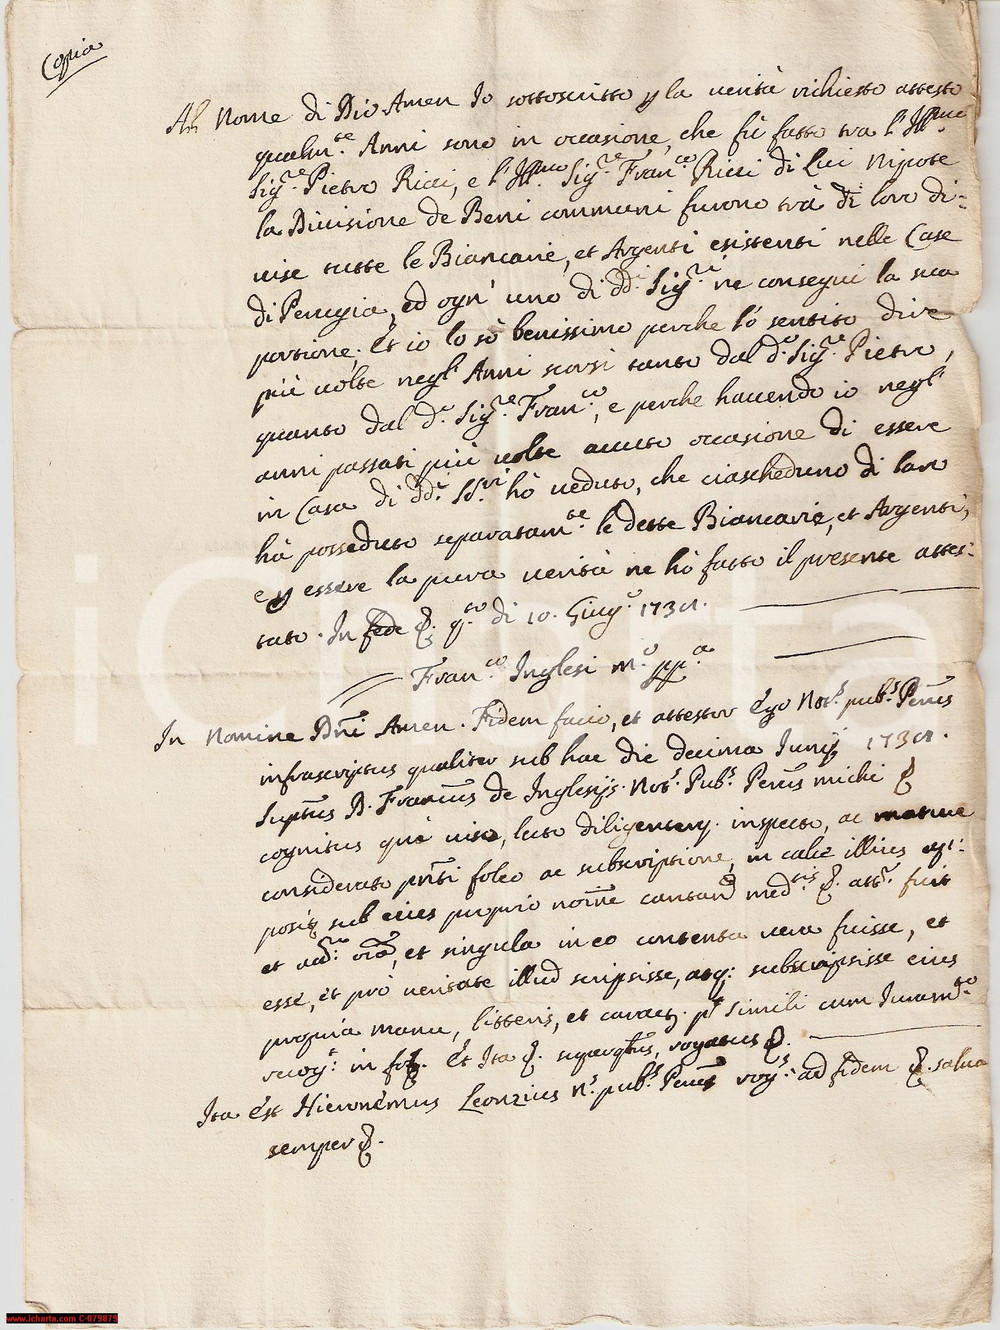 Copia
Al Nome di Dio Amen Io sottoscritto p la verità richiesto attesto
qualm.te Anni sono in occasione, che fù fatto tra l'Ill.mo
Sig.re Pietro Ricci, e l'Ill.mo Sig.re Fran.co Ricci di Lui Nipote
la Divisione de Beni communi furono trà di loro di-
vise tutte le Biancarie, et Argenti esistenti nelle Case
di Perugia, ed ogn' uno di dd.i Sig.ri ne conseguì la sua
portione; Et io lo sò benissimo perche l'ò sentito dire
più volte negl'Anni scorsi tanto dal d.o Sig.re Pietro,
quanto dal d.o Sig.re Fran.co, e perche havendo io negl'
anni passati più volte avuto occasione di essere
in Casa di dd.i SS.ri hò veduto, che ciascheduno di loro
hà posseduto separatam.te le dette Biancarie, et Argenti,
e p essere la pura verità ne hò fatto il presente attes-
tato. In fede q.to di 10. Giug.o
Fran.co Inglesi m.o pp.a
In Nomine Dñi Amen. Fidem facio, et attestor Ego Not.s pub.s Perus
infrascriptus qualiter sub hac die decima Junij
D. Francus de Inglesijs Not.s Pub.s Perus michi
cognitus viso, lecto diligenterq. inspecto, ac mature
considerato pñti folio ac subscriptione, in calce illius
sub eius proprio noiñe
et singula in eo contenta vera fuisse, et
esse, et pro veritate illud scripsisse, atq; subscripsisse eius
propria manu, litteris, et simili cum Juram.to
in Et Ita rogatus
Ita est Hieronimus Leonzius N.s pub.s Perus rog.s ad fidem salva
semper